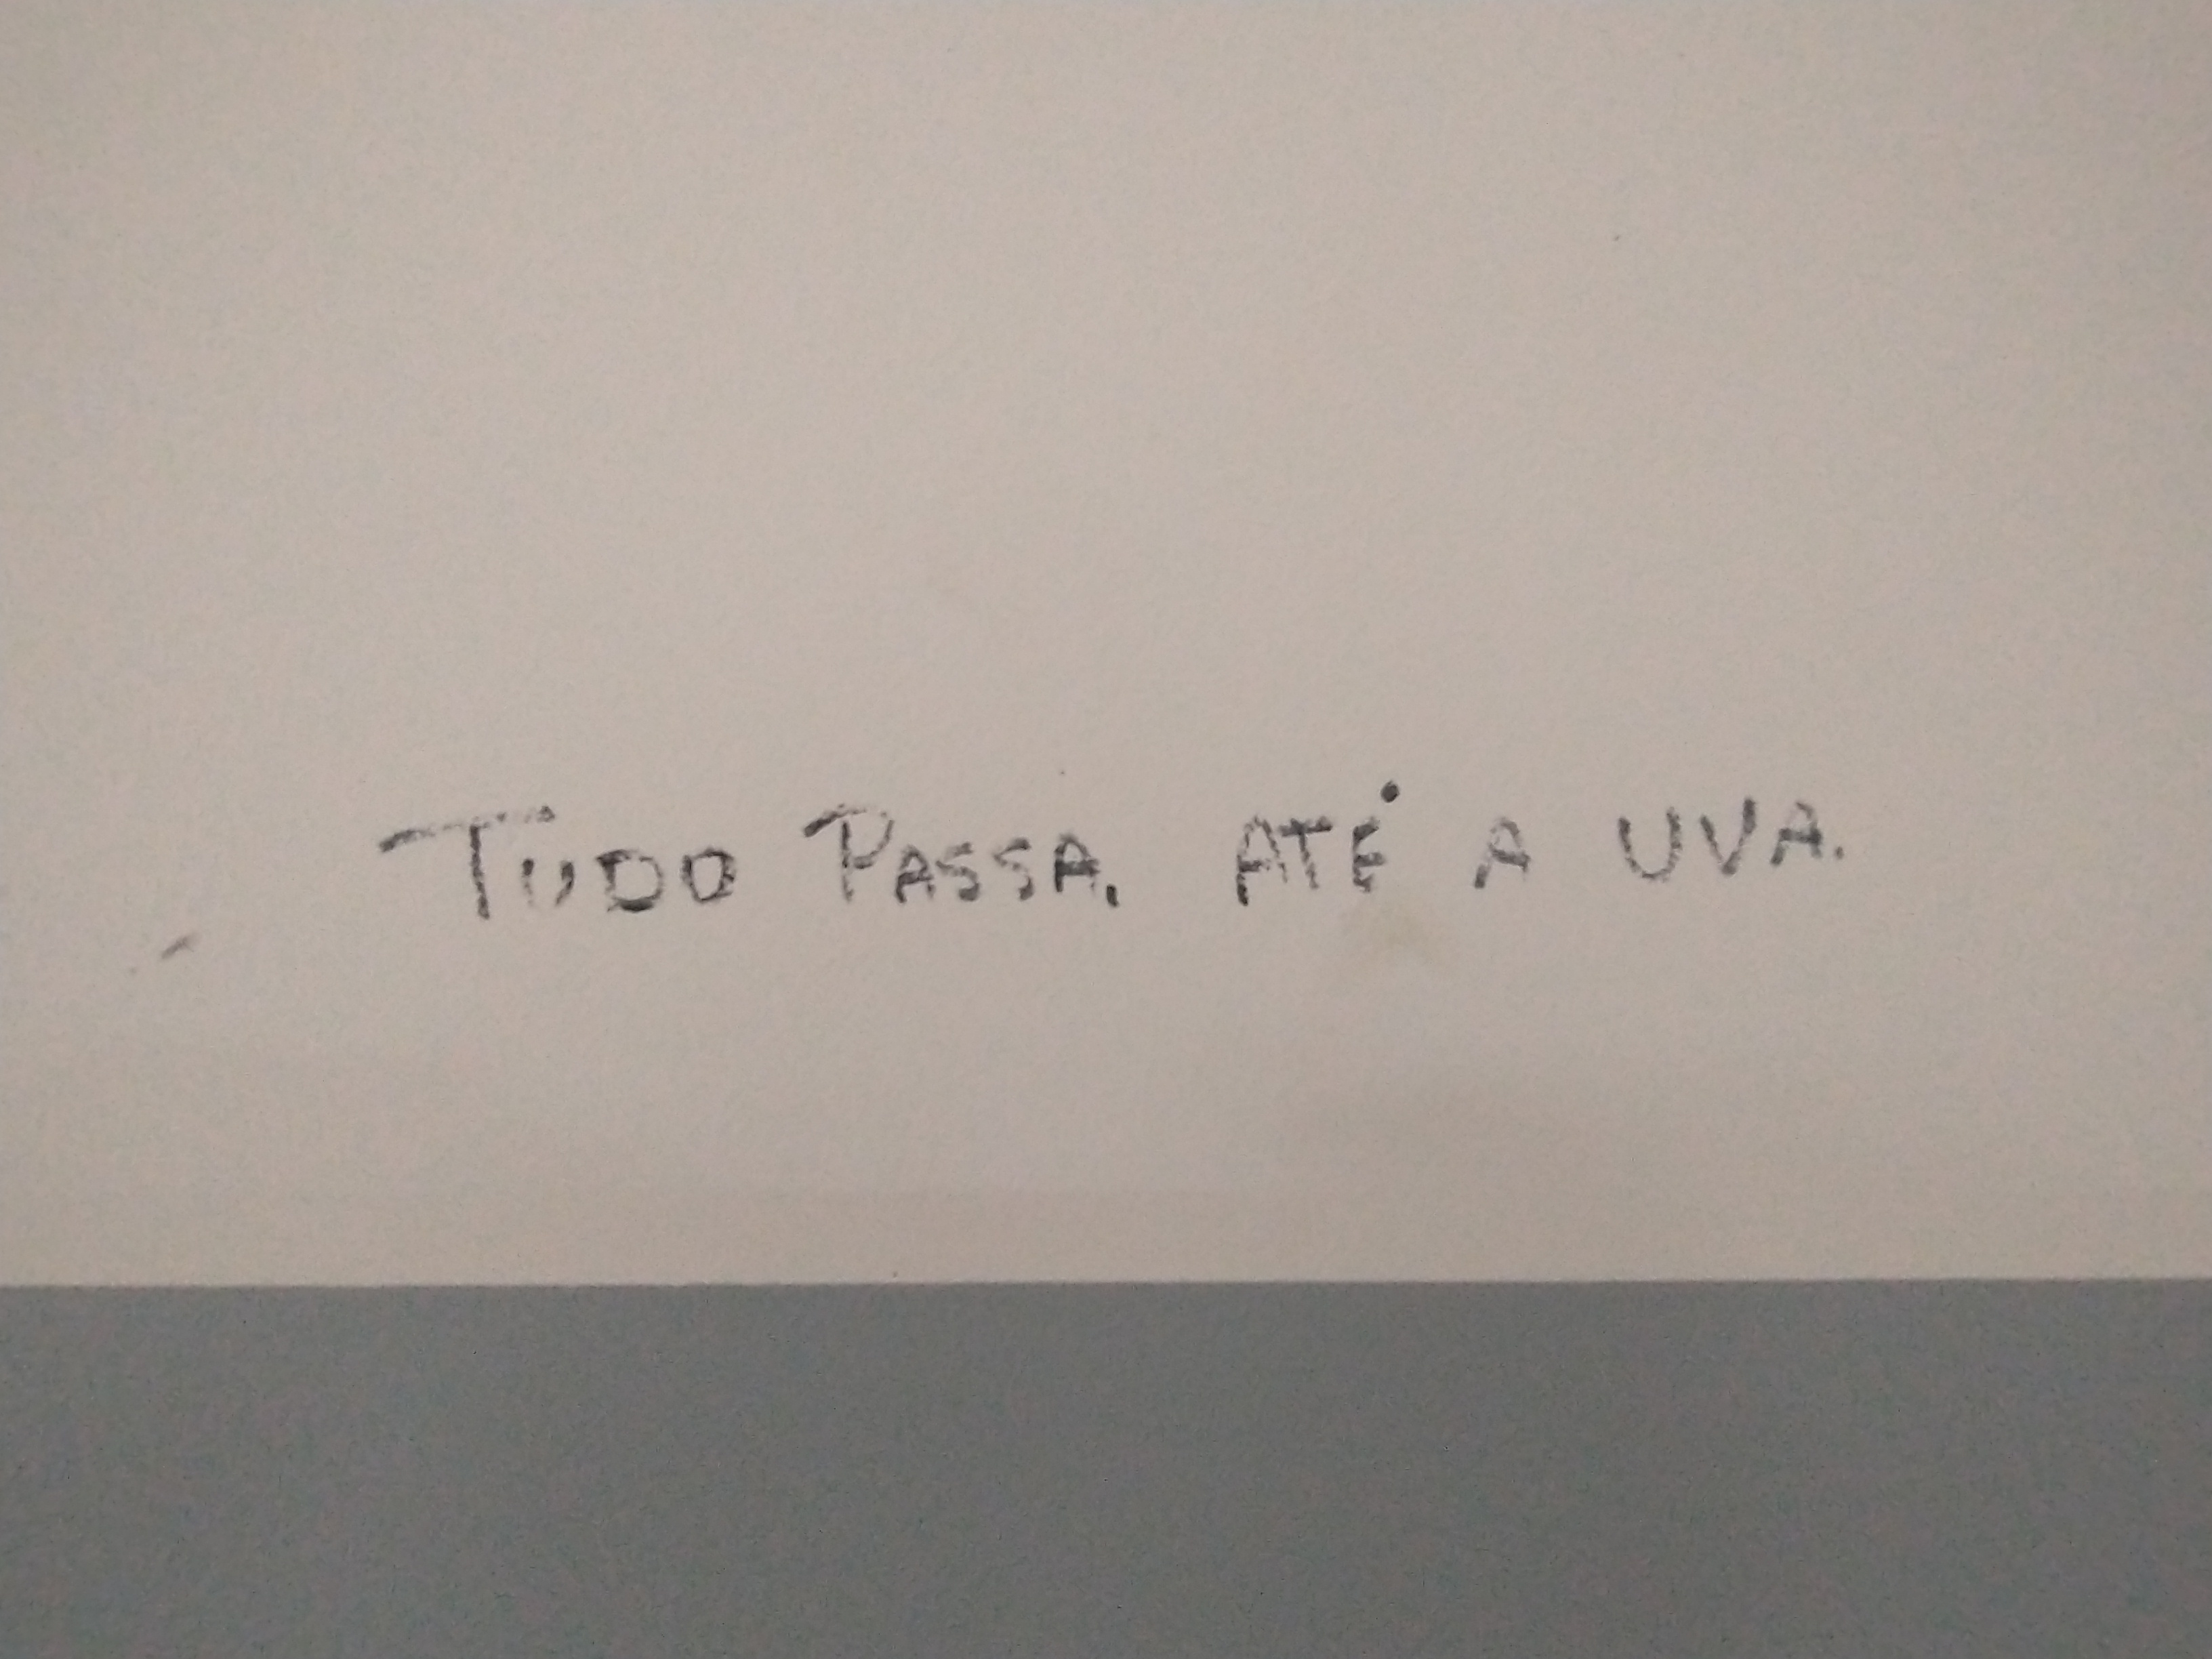 TUDO PASSA. ATÉ A UVA.